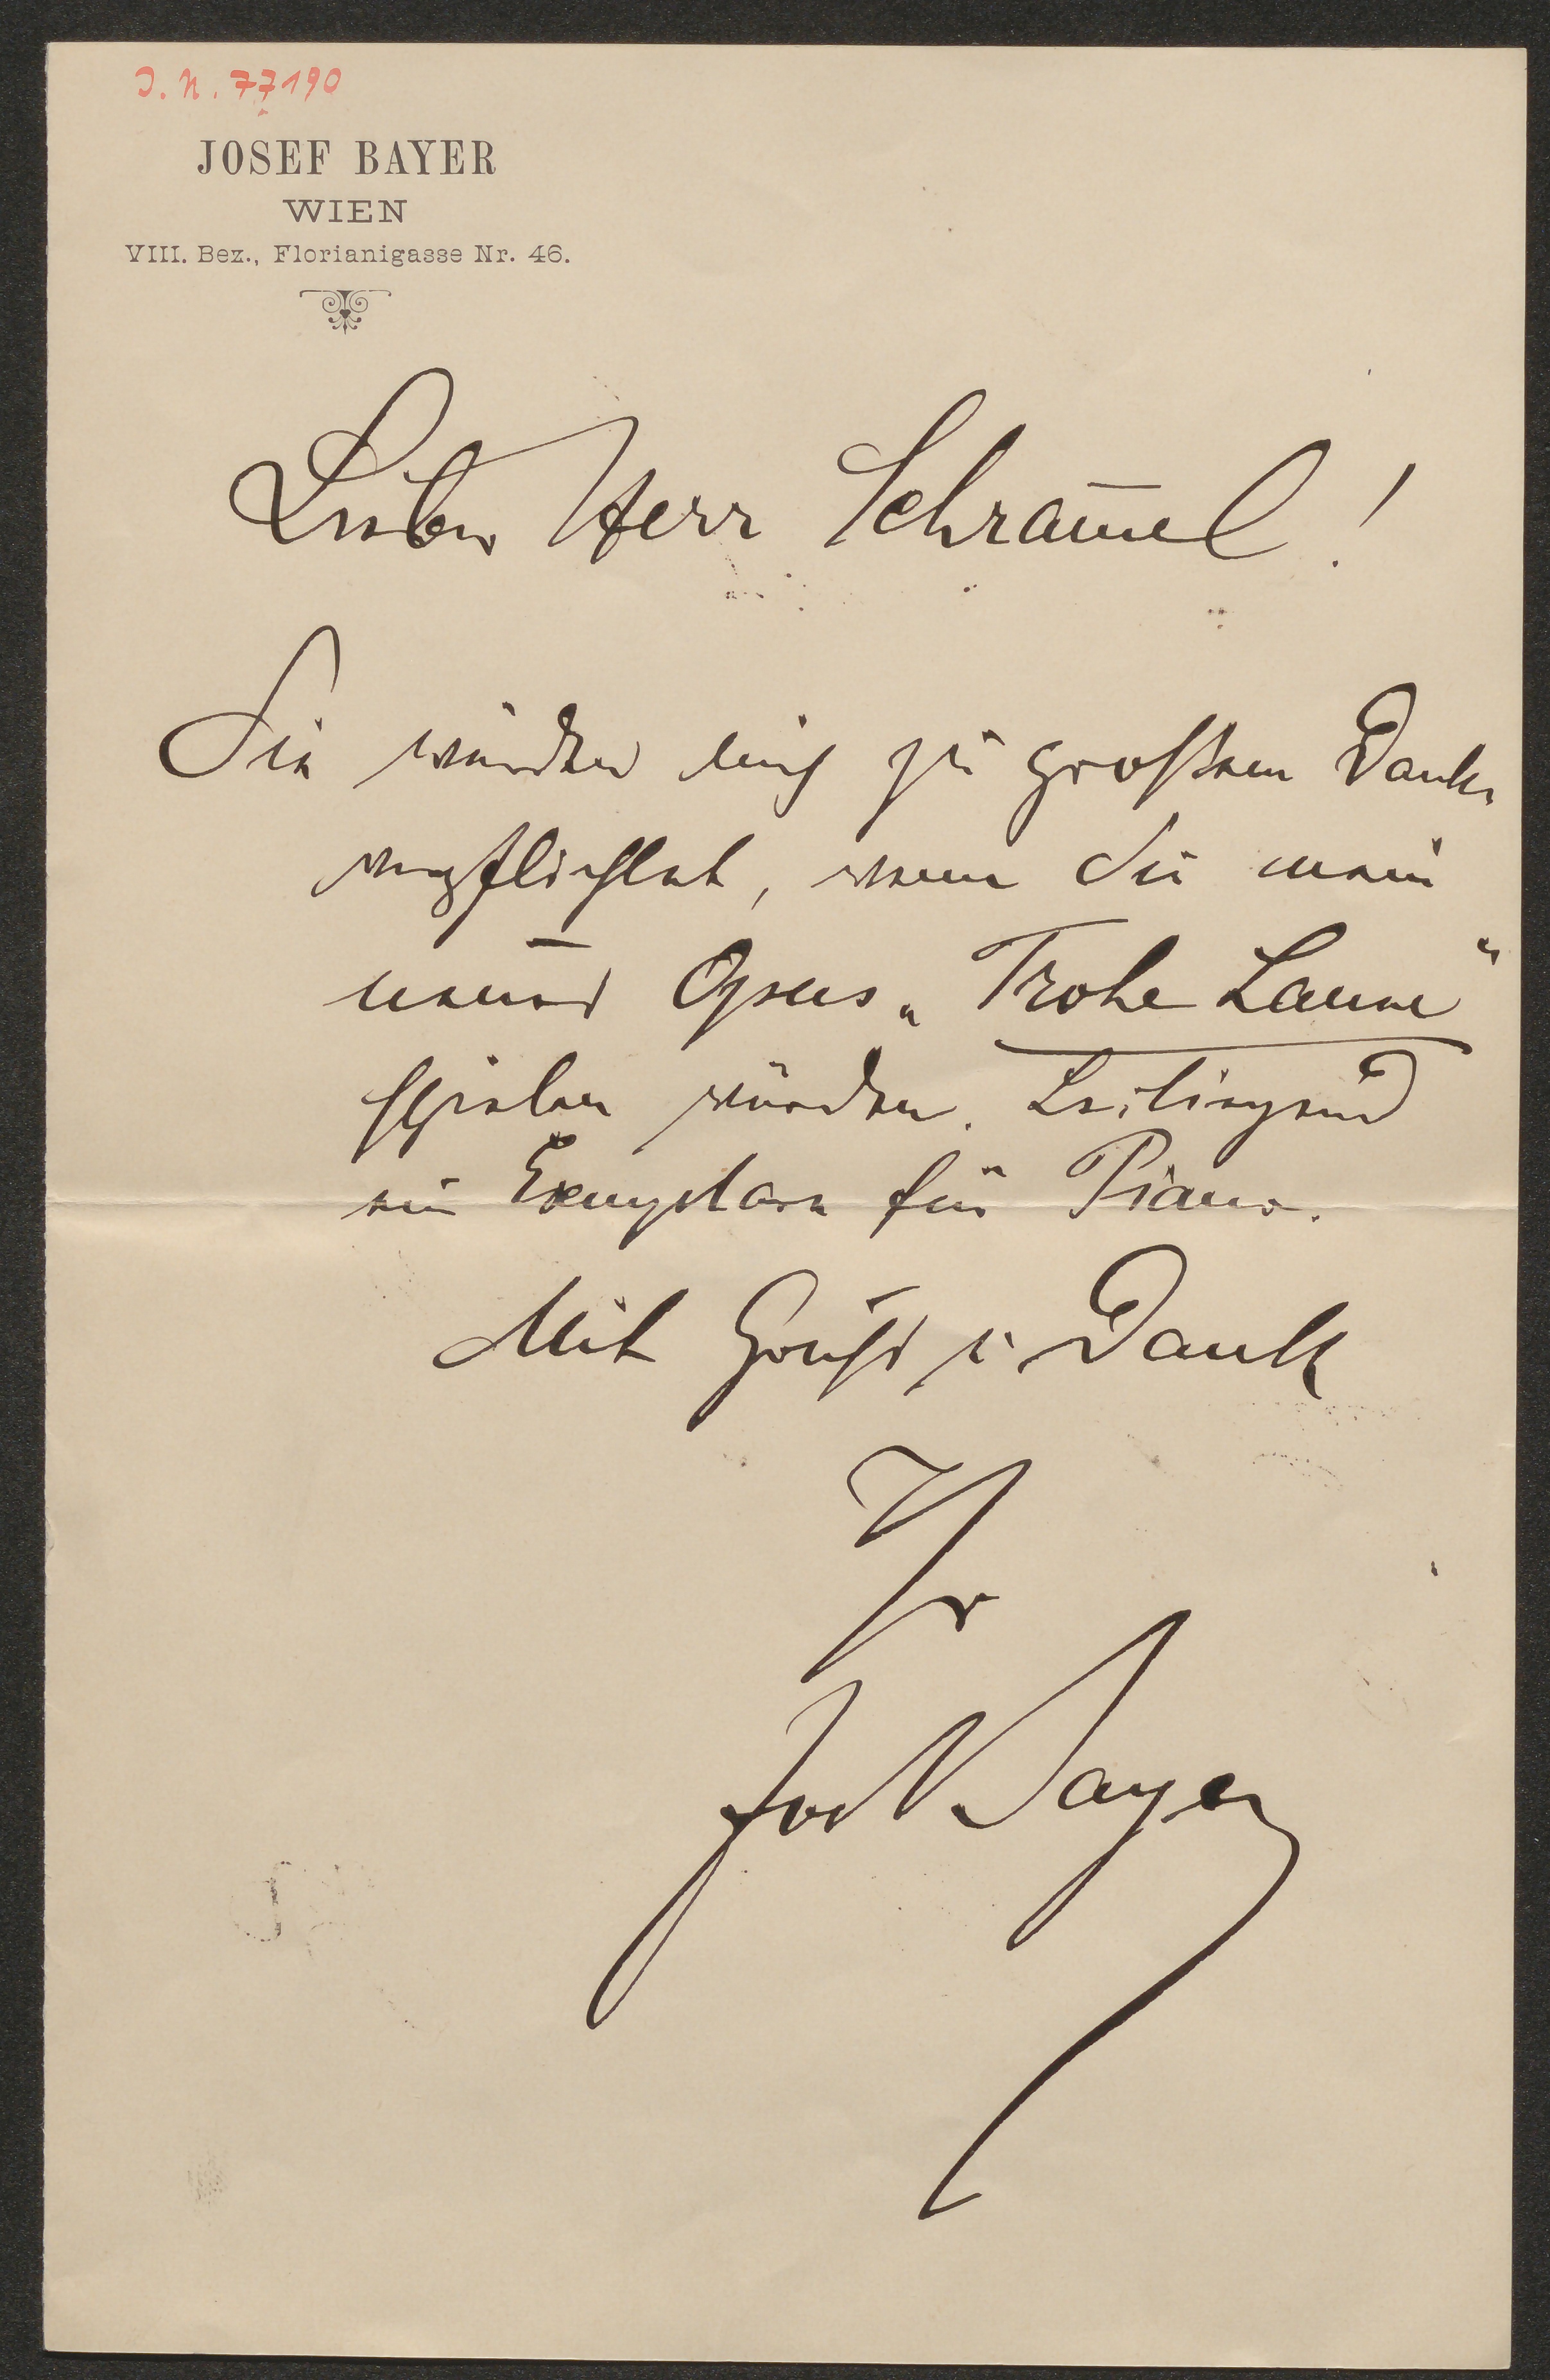 J. N. 77190
JOSEF BAYER
WIEN
VIII. Bez., Florianigasse Nr. 46.
Lieber Herr Schram̄el!
Sie würden mich zu großem Danke
verpflichtet, wenn Sie mein
neues Opus „Frohe Laune“
spielen würden. Beiliegend
ein Exemplar für Piano.
Mit Gruß u Dank
Ihr
Jos Bayer